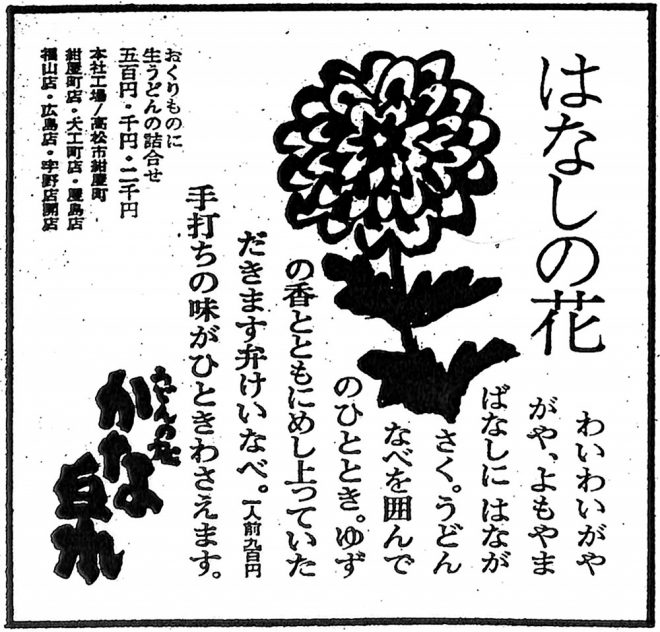 はなしの花
わいわいがや
がや、よもやま
ばなしに はなが
さく。うどん
なべを囲んで
のひととき。ゆず
の香とともにめし上っていた
だきます弁けいなべ。一人前九百円
手打ちの味がひときわさえます。
おくりものに
生うどんの詰合せ
五百円・千円・二千円
本社工場/高松市紺屋町
紺屋町店・大工町店・屋島店
福山店・広島店・宇野店開店
うどんの庄
かな泉